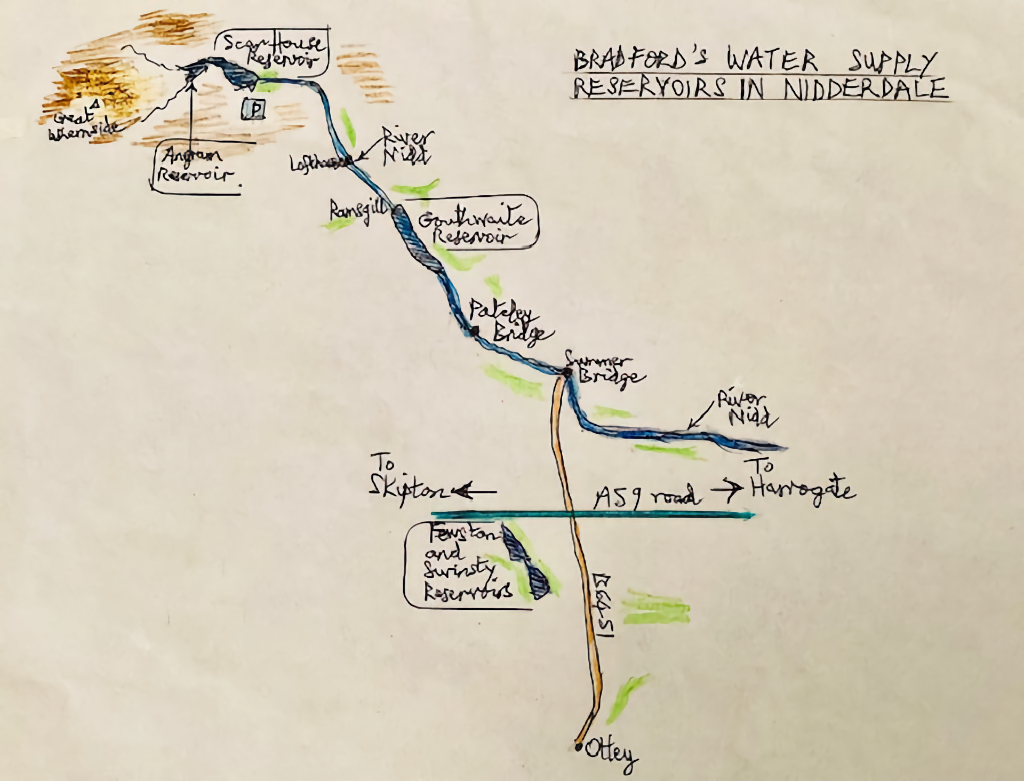 BRADFORD'S WATER SUPPLY
RESERVOIRS IN NIDDERDALE
Scar House
Reservoir
P
Great
Whernside
Angram
Reservoir
River
Nidd
Lofthouse
Ramsgill
Gouthwaite
Reservoir
Pateley
Bridge
Summer
Bridge
River
Nidd
To
Skipton
A59 road
To
Harrogate
Fewston
and
Swinsty
Reservoirs
B6451
Otley